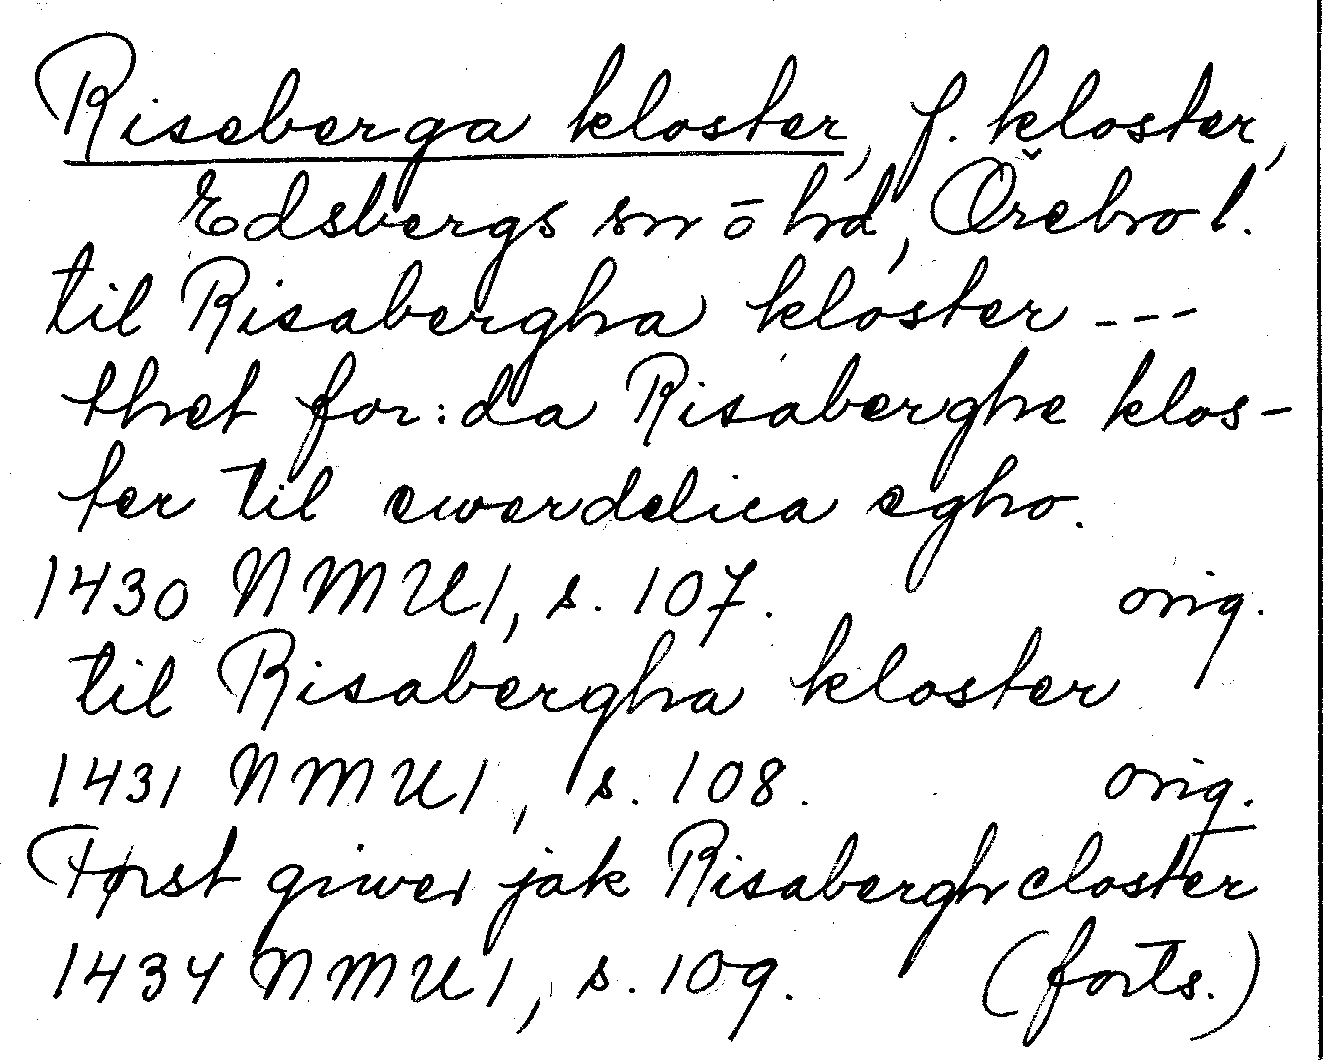 Riseberga kloster, f. kloster,
Edsbergs sn o hd, Örebro l.
til Risabergha kloster ---
thet for:da Risaberghe klos-
ter til ewerdelica egho.
1430 NMU1, s. 107. orig.
til Risabergha kloster
1431 NMU1, s. 108. orig.
Først giwer jak Risabergh closter
1434 NMU1, s. 109. (forts.)